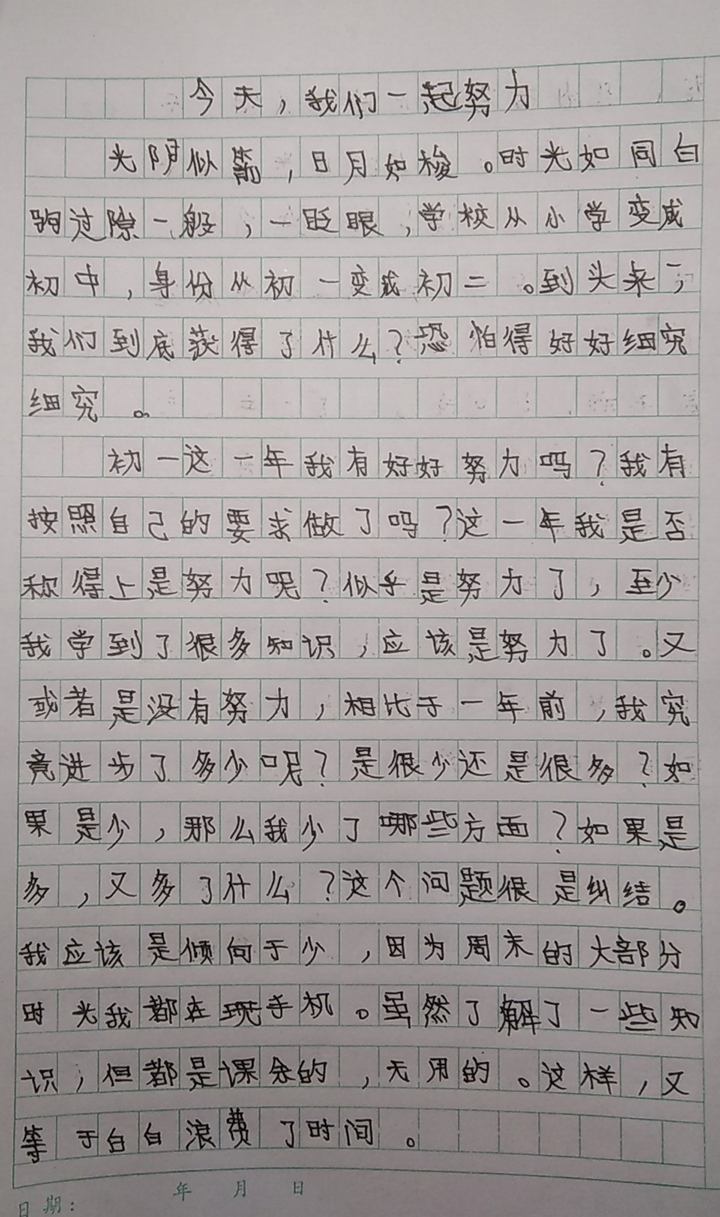 今天，我们一起努力
光阴似箭，日月如梭。时光如同白
驹过隙一般，一眨眼，学校从小学变成
初中，身份从初一变成初二。到头来，
我们到底获得了什么？恐怕得好好细究
细究。
初一这一年我有好好努力吗？我有
按照自己的要求做了吗？这一年我是否
称得上是努力呢？似乎是努力了，至少
我学到了很多知识，应该是努力了。又
或者是没有努力，相比于一年前，我究
竟进步了多少呢？是很少还是很多？如
果是少，那么我少了哪些方面？如果是
多，又多了什么？这个问题很是纠结。
我应该是倾向于少，因为周末的大部分
时光我都在玩手机。虽然了解了一些知
识，但都是课余的，无用的。这样，又
等于白白浪费了时间。
日期： 年 月 日